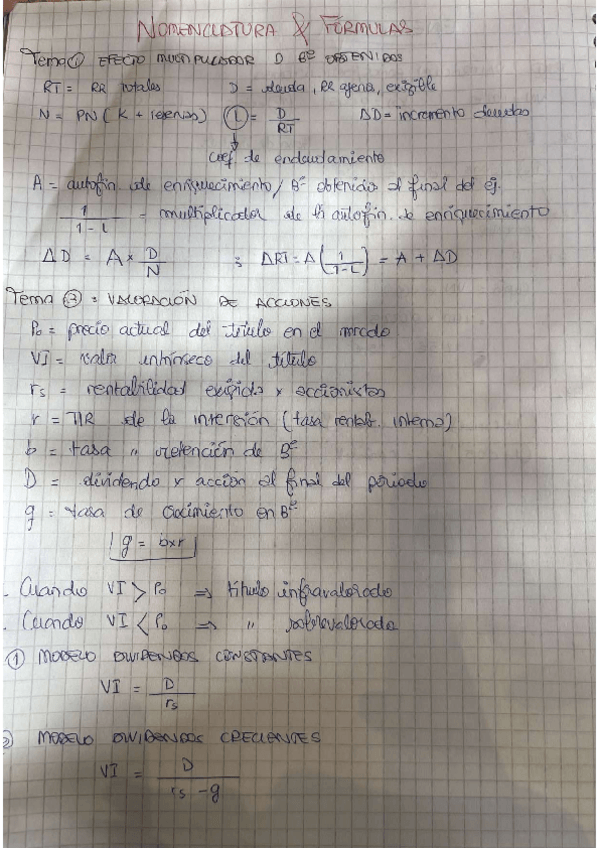 NOMENCLATURA & FÓRMULAS
Tema ① EFECTO MULTIPLICADOR D Bº OBTENIDOS
RT = RR totales D = deuda, RR ajena, exigible
N = PN ( K + reservas) Ⓛ = D/RT ΔD = incremento deudas
coef. de endeudamiento
A = autofin. de enriquecimiento / Bº obtenido al final del ej.
1/(1-L) = multiplicador de la autofin. de enriquecimiento
ΔD = A × D/N ; ΔRT = A (1/(1-L)) = A + ΔD
Tema ③ : VALORACIÓN DE ACCIONES
P₀ = precio actual del título en el mercado
VI = valor intrínseco del título
rs = rentabilidad exigida x accionistas
r = TIR de la inversión (tasa rentab. interna)
b = tasa " retención de Bº
D = dividendo x acción al final del periodo
g = tasa de crecimiento en Bº
g = b×r
. Cuando VI > P₀ => título infravalorado
. Cuando VI < P₀ => " sobrevalorado
① MODELO DIVIDENDOS CONSTANTES
VI = D/rs
② MODELO DIVIDENDOS CRECIENTES
VI = D/(rs - g)